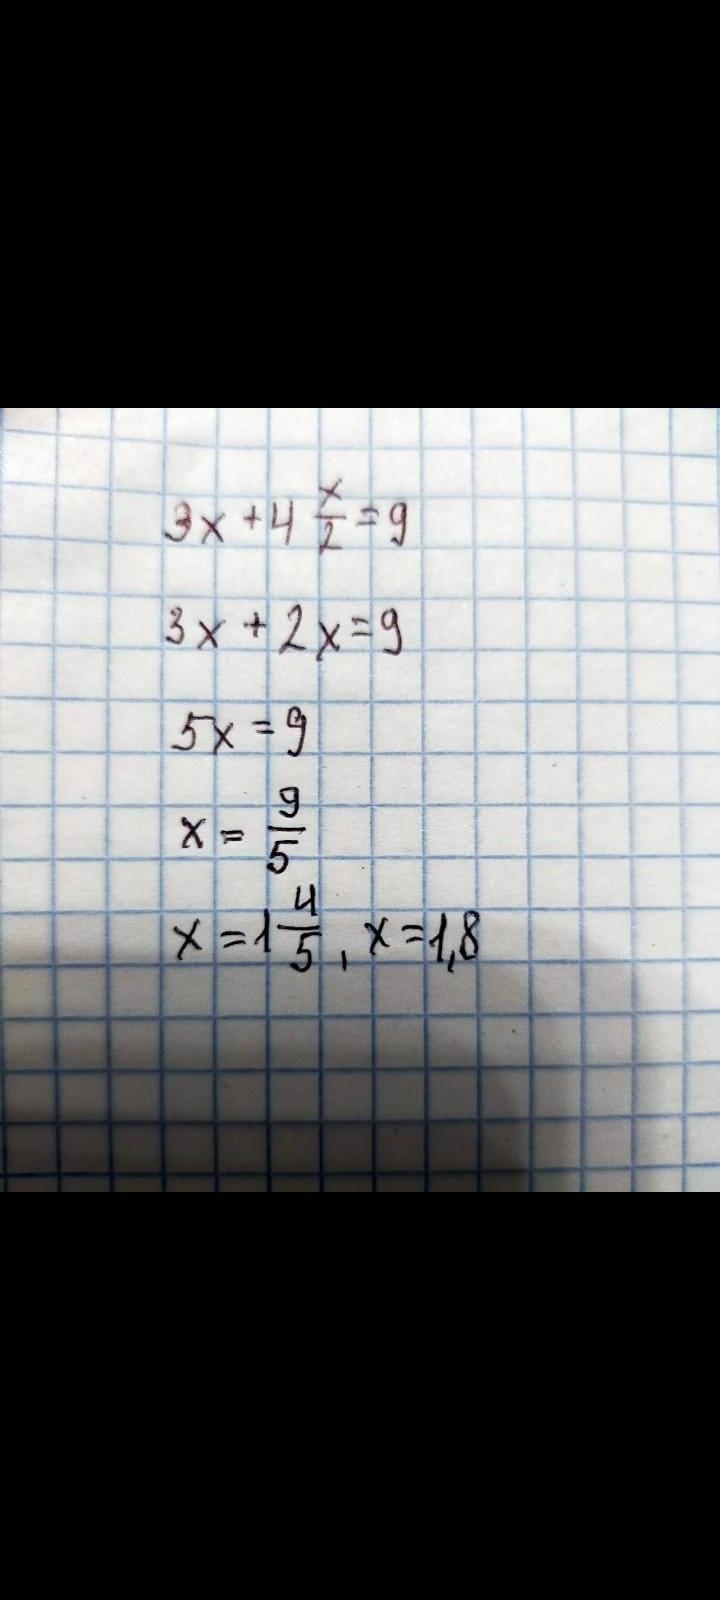 3x + 4 x/2 = 9
3x + 2x = 9
5x = 9
x = 9/5
x = 1 4/5, x = 1,8